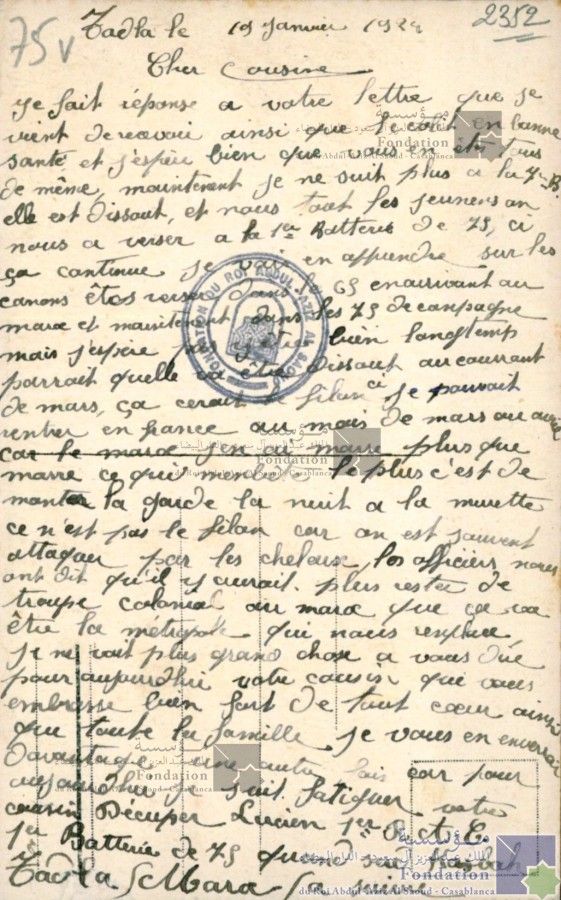 2352
75 v
Tadla le 19 Janvier 1924
Cher Cousine
Je fait réponse a votre lettre que je
vient de recevoir ainsi que le colit en bonne
santé et j'espère bien que vous en ete tous
de même, maintenent je ne suit plus a la 7me B
elle est dissout, et nous tout les jeunes on
nous a verser a la 1er Batterie de 75, ci
ça continue je vais en apprendre sur les
canons êtes verser dans le 65 en arrivant au
maroc et maintenent dans les 75 de campagne
mais j'espère pas y être bien longtemp
parrait quelle va être dissout au courrant
de mars, ça cerait le filon ci je pouvait
rentrer en france au mois de mars ou avril
car le maroc j'en ai marre plus que
marre ce qui m'embete le plus c'est de
monter la garde la nuit a la murette
ce n'est pas le filon car on est souvent
attaquer par les cheloux, les officiers nous
ont dit qu'il y aurait plus rester de
troupe colonial au maroc que ça va
être la métropole qui nous remplace
Je ne voit plus grand chose a vous dire
pour aujourdhui votre cousin qui vous
embrasse bien fort de tout cœur ainsi
que toute la famille je vous en enverrai
davantage une autre fois car pour
aujourdhui je suit fatiguer votre
cousin Décuper Lucien 1er
1er Batterie de 75 Kasbah
Tadla Maroc
FONDATION DU ROI ABDUL AZIZ AL SAOUD
مؤسسة
الملك عبد العزيز آل سعود الدار البيضاء
Fondation
du Roi Abdul Aziz Al Saoud - Casablanca